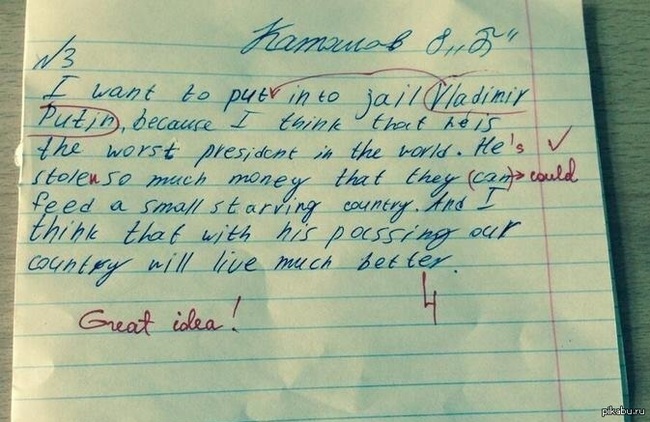 Катышов 8 „Б"
№3
I want to put into jail Vladimir
Putin, because I think that he is
the worst president in the world. He's
stolen so much money that they (can) → could
feed a small starving country. And I
think that with his passing our
country will live much better.
4
Great idea!
pikabu.ru